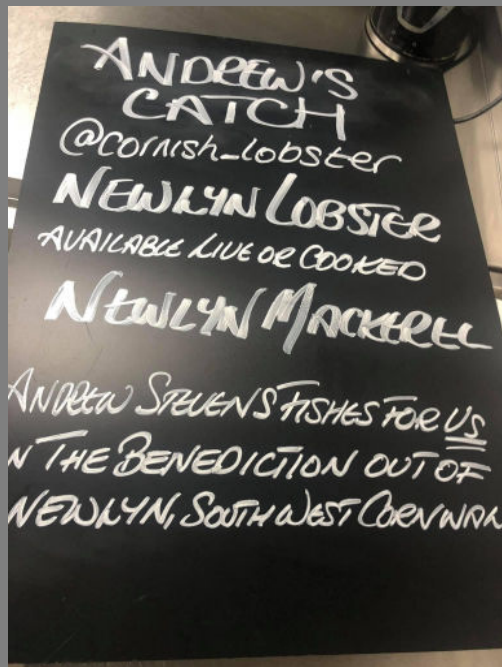 ANDREW'S
CATCH
@cornish_lobster
NEWLYN LOBSTER
AVAILABLE LIVE OR COOKED
NEWLYN MACKEREL
ANDREW STEVENS FISHES FOR US
N THE BENEDICTION OUT OF
NEWLYN, SOUTH WEST CORNWALL